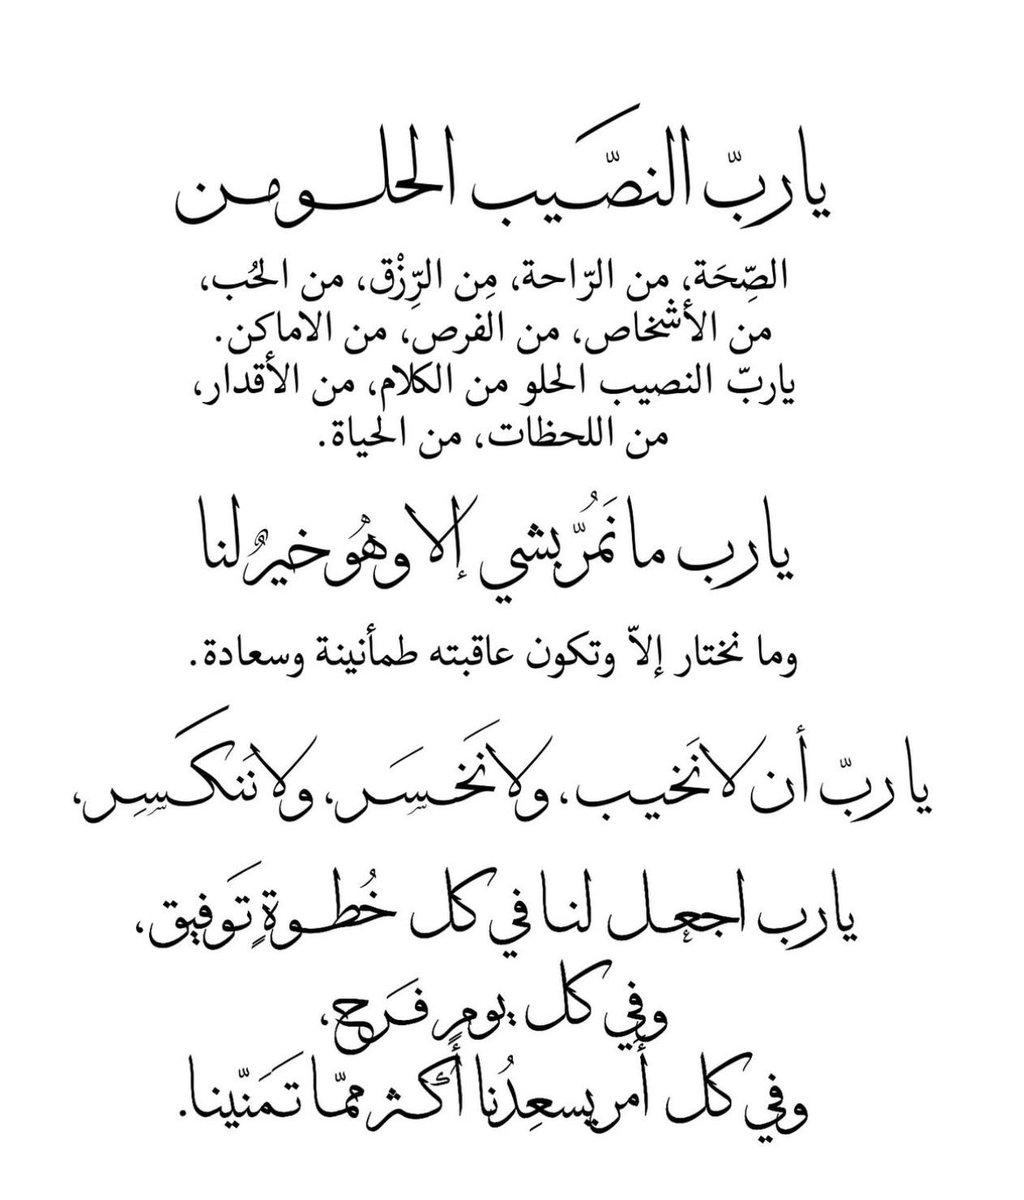 يارب‌ّ النصَّيب الحلو من
الصِّحَة، من الرّاحة، مِن الرِّزْق، من الحُب،
من الأشخاص، من الفرص، من الاماكن.
ياربّ النصيب الحلو من الكلام، من الأقدار،
من اللحظات، من الحياة.
يارب ما نَمُرّ بشي إلا وهُو خيرٌ لنا
وما نختار إلاّ وتكون عاقبته طمأنينة وسعادة.
ياربّ أن لا نَخيب، ولا نَخسَر، ولا نَنكَسِر،
يارب اجعل لنا في كل خُطوةٍ تَوفيق،
وفي كل يومٍ فَرَح،
وفي كل أمر يسعِدُنا أكثر ممّا تَمَنّينا.